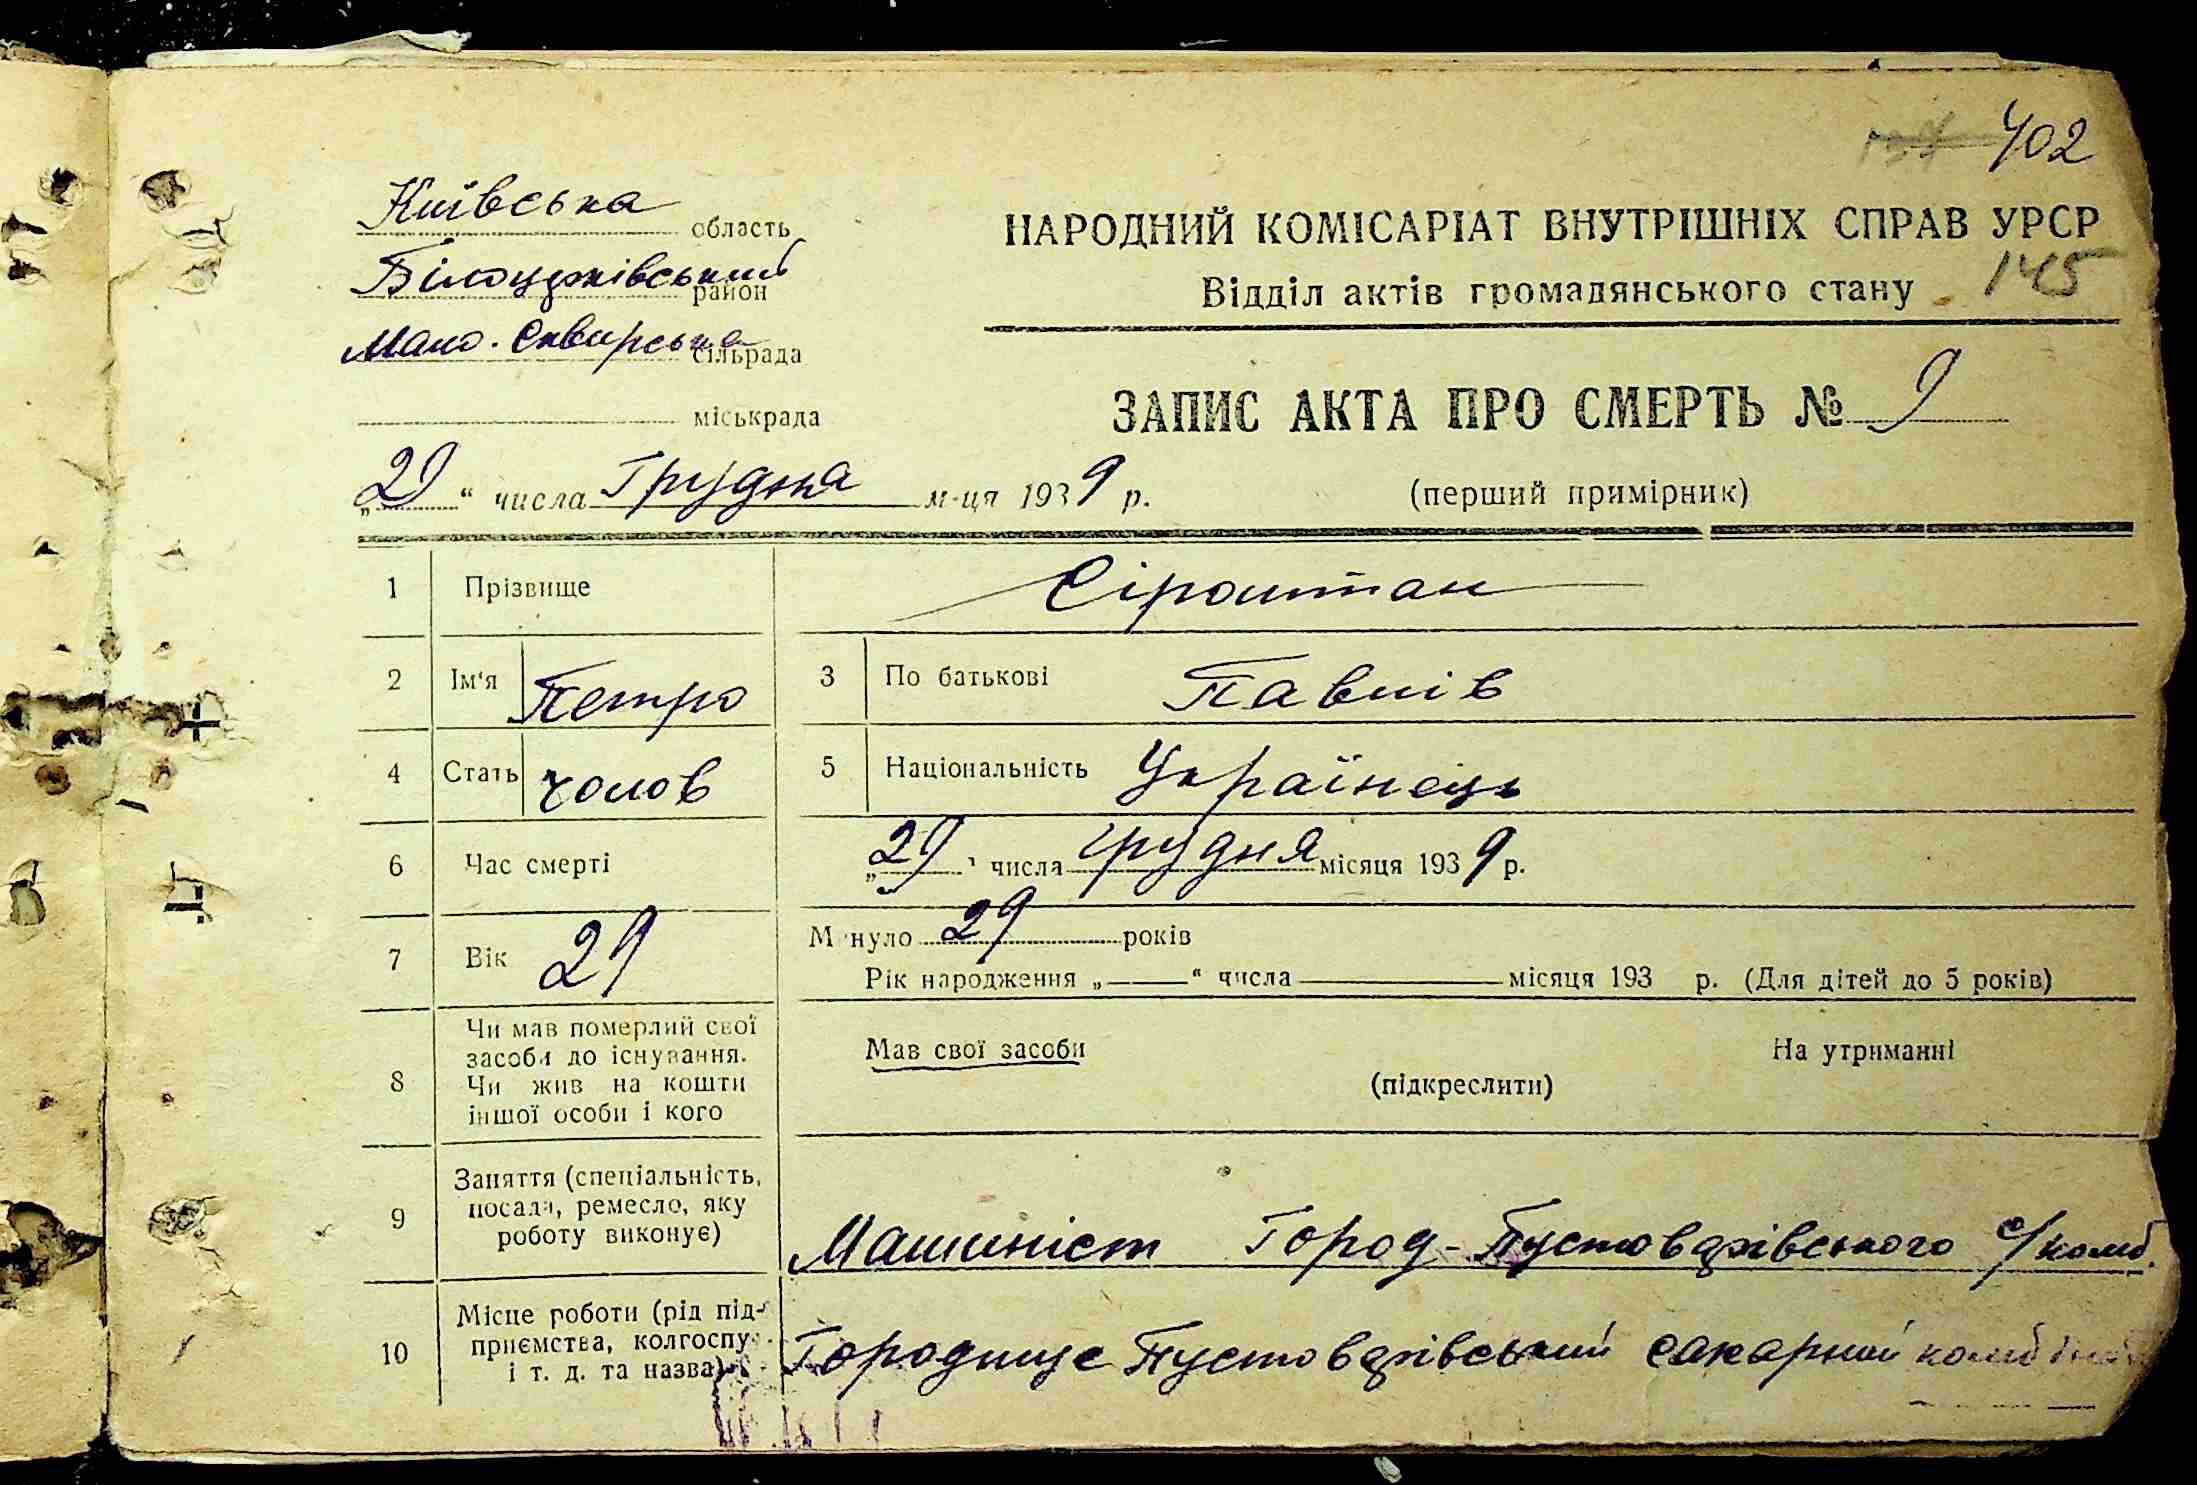 402
Київська область
НАРОДНИЙ КОМІСАРІАТ ВНУТРІШНІХ СПРАВ УРСР
Білоцерківський район
Відділ актів громадянського стану
145
Мало-Сквирська сільрада
міськрада
ЗАПИС АКТА ПРО СМЕРТЬ № 9
„29“ числа Грудня м-ця 1939 р.
(перший примірник)
1 Прізвище Сіроштан
2 Ім'я Петро 3 По батькові Павлів
4 Стать чолов 5 Національність Українець
6 Час смерті „29“ числа грудня місяця 1939 р.
7 Вік 29 Минуло 29 років
Рік народження „—“ числа — місяця 193 р. (Для дітей до 5 років)
8 Чи мав померлий свої
засоби до існування.
Чи жив на кошти
іншої особи і кого
Мав свої засоби На утриманні
(підкреслити)
9 Заняття (спеціальність,
посада, ремесло, яку
роботу виконує)
Машиніст Город-Пустоварівського с/комб.
10 Місце роботи (рід під-
приємства, колгоспу
і т. д. та назва)
Городище Пустоварівський сахарний комбінат